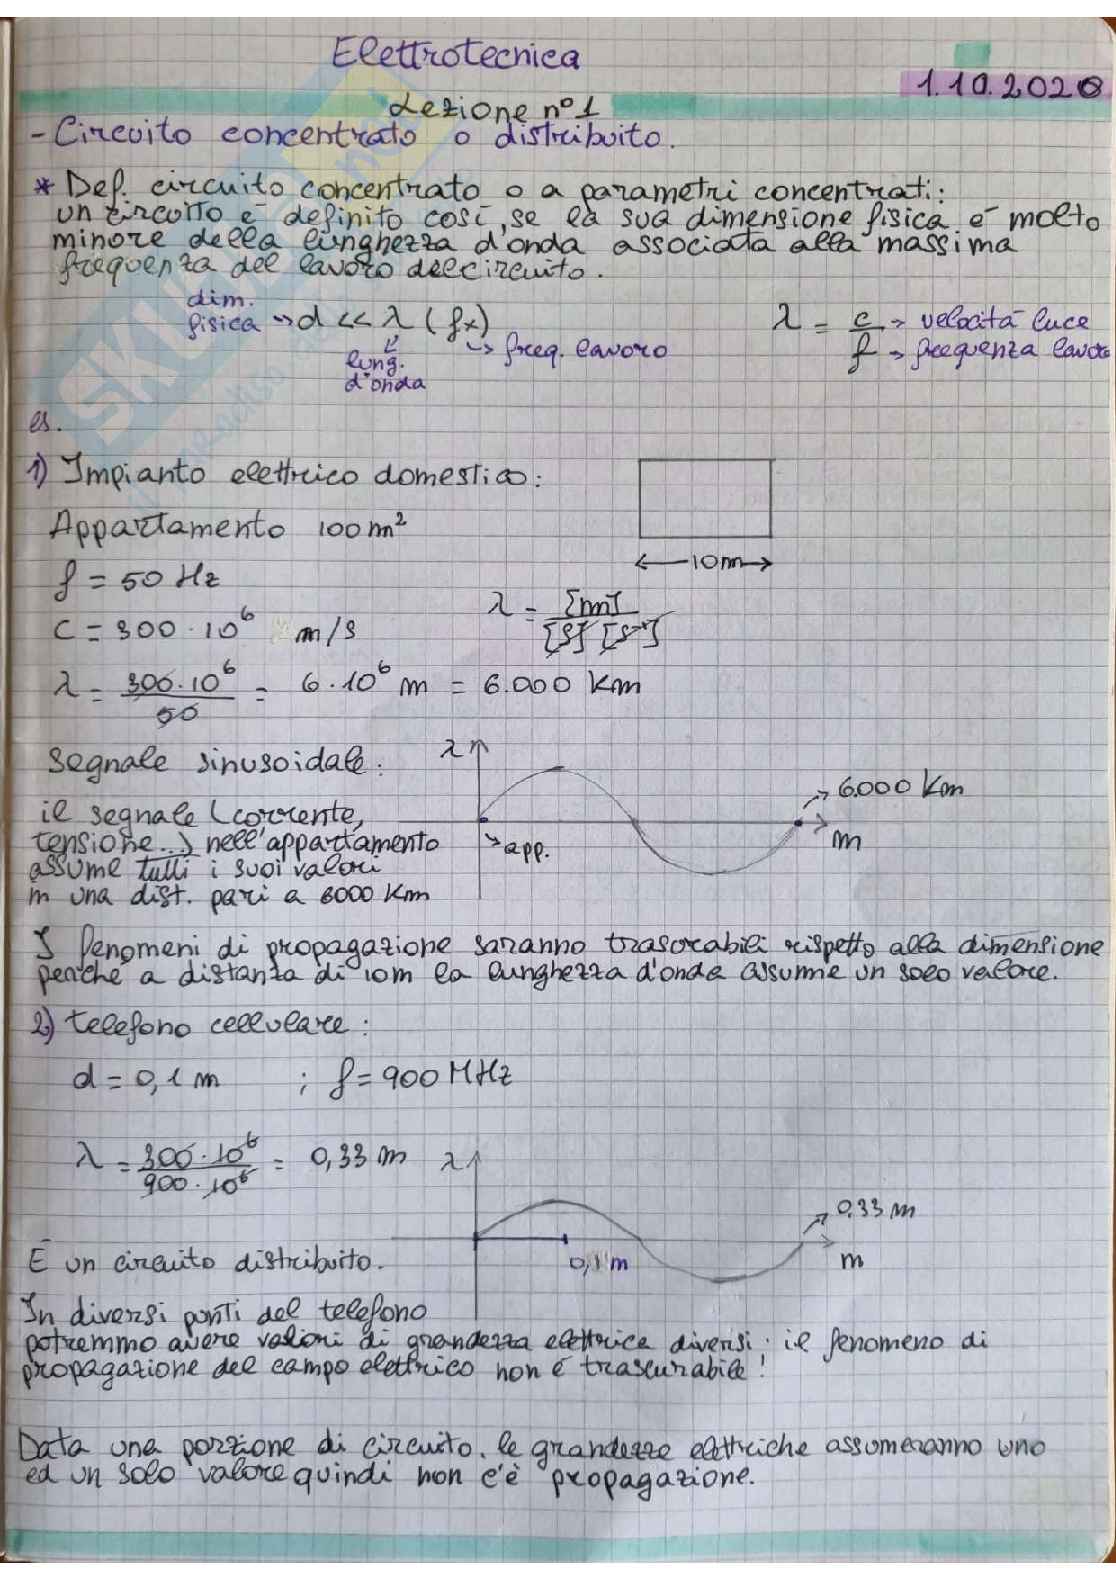 Elettrotecnica
1.10.2020
Lezione n° 1
- Circuito concentrato o distribuito.
* Def. circuito concentrato o a parametri concentrati:
un circuito è definito così, se la sua dimensione fisica è molto
minore della lunghezza d'onda associata alla massima
frequenza del lavoro del circuito.
dim.
fisica → d << λ (fx)
lung.
d'onda
↳ freq. lavoro
λ = c → velocità luce
f → frequenza lavoro
es.
1) Impianto elettrico domestico:
Appartamento 100 m²
10 m
f = 50 Hz
c = 300 · 10⁶ m/s
λ = [m]
[s] [s⁻¹]
λ = 300·10⁶ / 50 = 6·10⁶ m = 6.000 Km
Segnale sinusoidale:
λ
6.000 Km
m
app.
il segnale (corrente,
tensione...) nell'appartamento
assume tutti i suoi valori
in una dist. pari a 6000 Km
I fenomeni di propagazione saranno trascurabili rispetto alla dimensione
perché a distanza di 10m la lunghezza d'onda assume un solo valore.
2) telefono cellulare:
d = 0,1 m ; f = 900 MHz
λ = 300·10⁶ / 900·10⁶ = 0,33 m
λ
0,33 m
0,1 m
m
È un circuito distribuito.
In diversi punti del telefono
potremmo avere valori di grandezza elettrica diversi: il fenomeno di
propagazione del campo elettrico non è trascurabile!
Data una porzione di circuito, le grandezze elettriche assumeranno uno
ed un solo valore quindi non c'è propagazione.